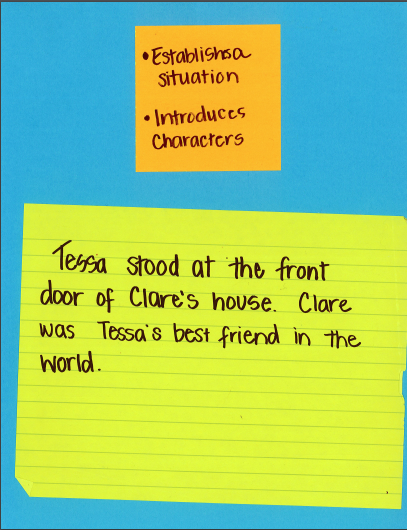 • Establishsa
situation
• Introduces
Characters
Tessa stood at the front
door of Clare's house. Clare
was Tessa's best friend in the
world.